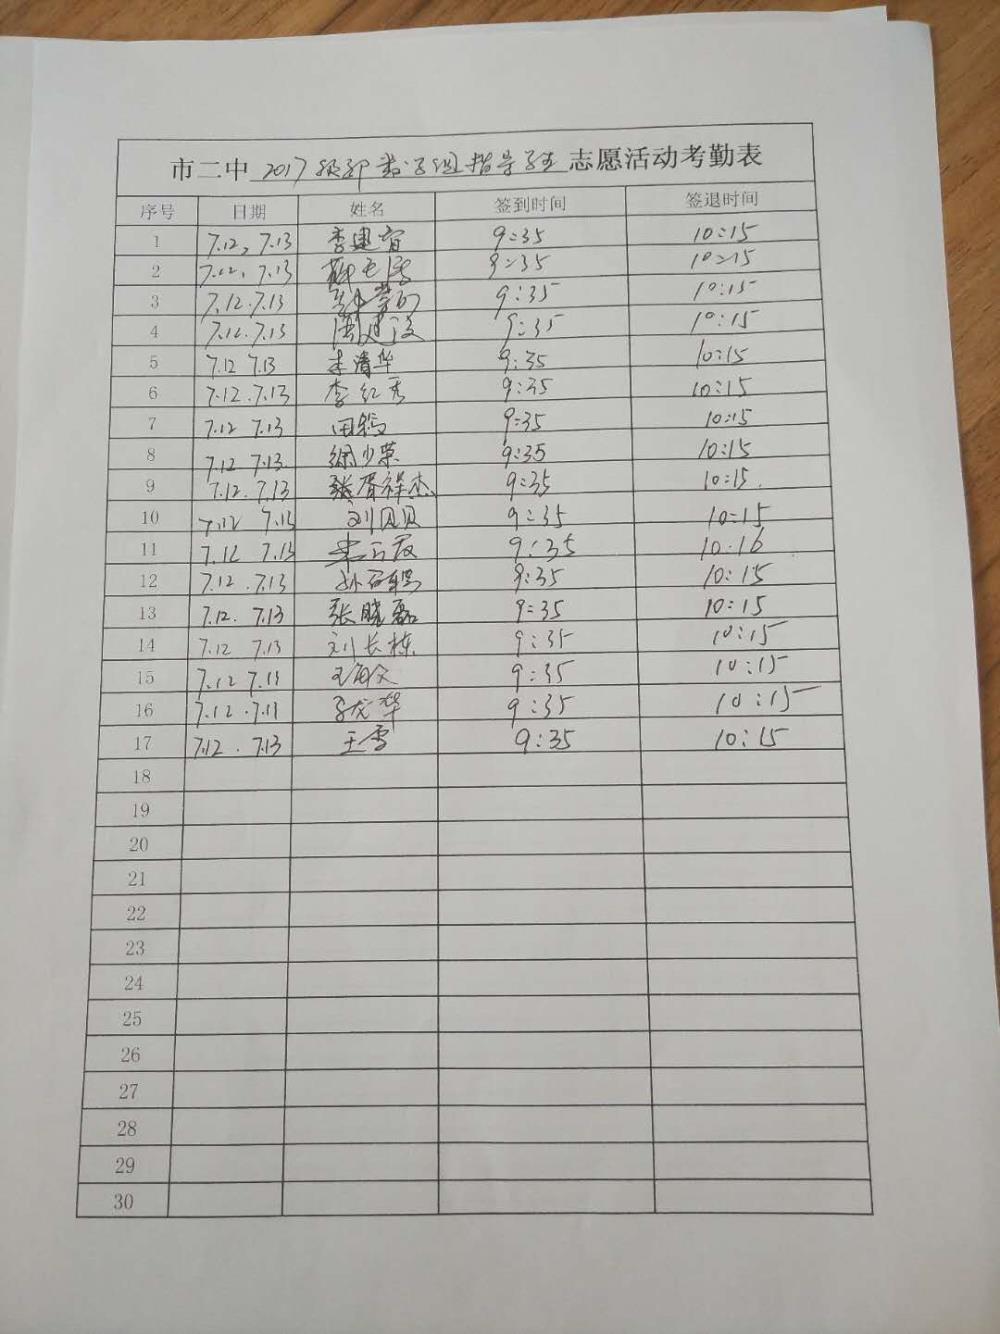 市二中 2017级部数学组指导学生 志愿活动考勤表
序号 日期 姓名 签到时间 签退时间
1 7.12, 7.13 李建宵 9:35 10:15
2 7.12, 7.13 9:35 10:15
3 7.12. 7.13 9:35 10:15
4 7.12. 7.13 9:35 10:15
5 7.12 7.13 李清华 9:35 10:15
6 7.12. 7.13 李红秀 9:35 10:15
7 7.12 7.13 9:35 10:15
8 7.12 7.13 徐少荣 9:35 10:15
9 7.12. 7.13 张胥祥杰 9:35 10:15.
10 7.12 7.13 刘贝贝 9:35 10:15
11 7.12 7.13 9:35 10.16
12 7.12. 7.13 9:35 10:15
13 7.12. 7.13 张晓磊 9:35 10:15
14 7.12 7.13 刘长栋 9:35 10:15
15 7.12 7.13 9:35 10:15
16 7.12. 7.13 9:35 10:15
17 7.12. 7.13 王雪 9:35 10:15
18
19
20
21
22
23
24
25
26
27
28
29
30